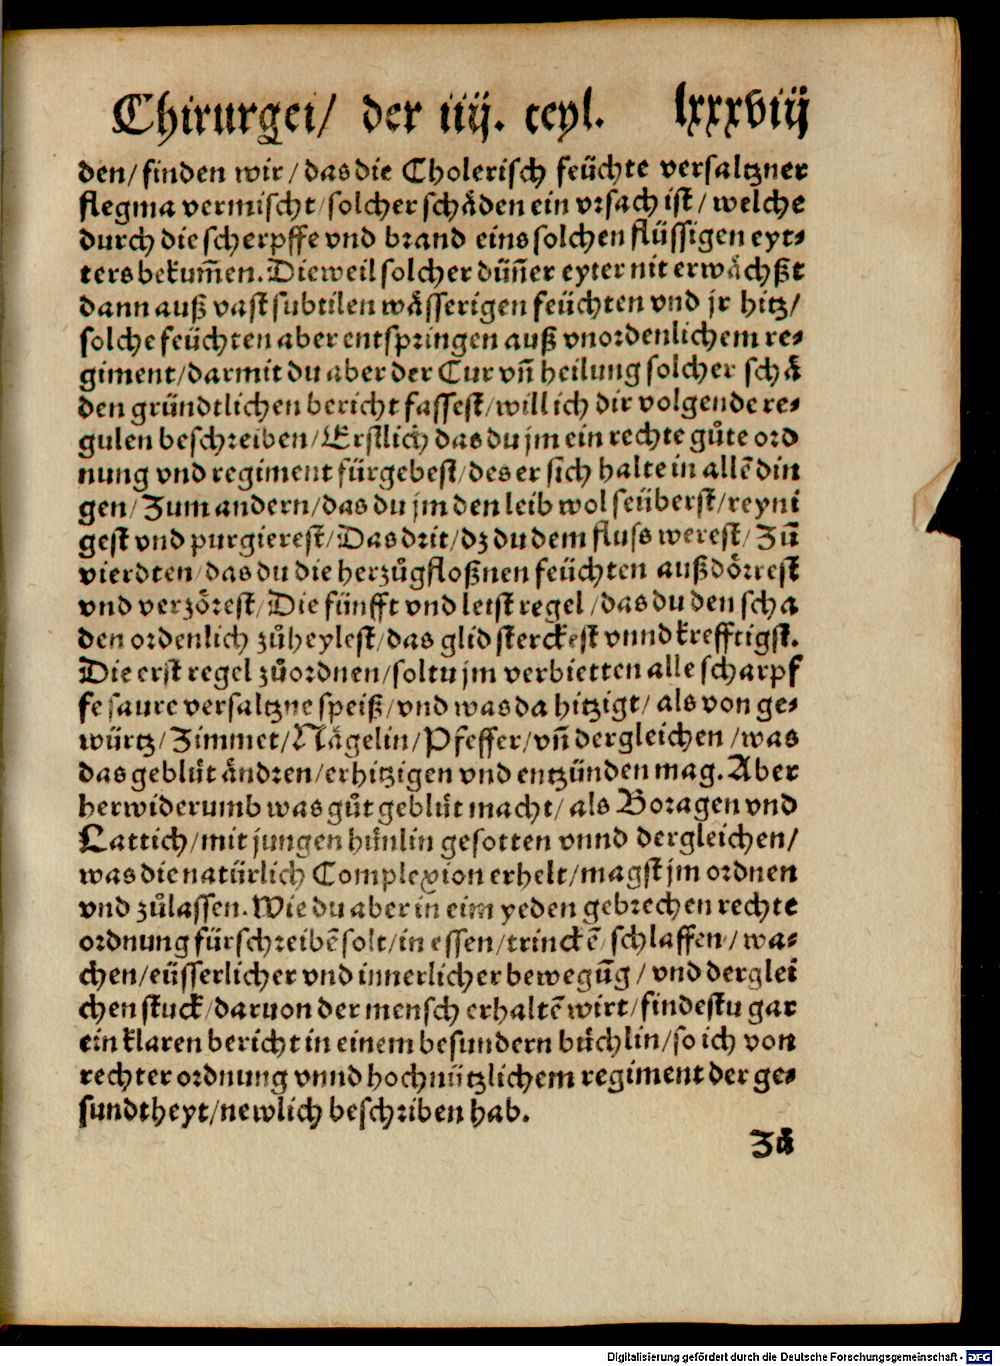 Chirurgei/ der iiij. teyl. lxxxviij
den/ finden wir/ das die Cholerisch feüchte versaltzner
flegma vermischt/ solcher schäden ein vrsach ist/ welche
durch die scherpffe vnd brand eins solchen flüssigen eyt⸗
ters bekum̃en. Dieweil solcher dün̄er eyter nit erwächßt
dann auß vast subtilen wässerigen feüchten vnd jr hitz/
solche feüchten aber entspringen auß vnordenlichem re⸗
giment/ darmit du aber der Cur vn̄ heilung solcher schä
den gründtlichen bericht fassest/ will ich dir volgende re⸗
gulen beschreiben/ Erstlich das du jm ein rechte gůte ord
nung vnd regiment fürgebest/ des er sich halte in allē din
gen/ Zum andern/ das du jm den leib wol seüberst/ reyni
gest vnd purgierest/ Das drit/ dz du dem fluss werest/ Zū
vierdten/ das du die herzůgfloßnen feüchten außdörrest
vnd verzörest/ Die fünfft vnd letst regel/ das du den scha
den ordenlich zůheylest/ das glid sterckest vnnd krefftigst.
Die erst regel zůordnen/ soltu jm verbietten alle scharpf
fe saure versaltzne speiß/ vnd was da hitzigt/ als von ge⸗
würtz/ Zimmet/ Nägelin/ Pfeffer/ vn̄ dergleichen/ was
das geblüt ändren/ erhitzigen vnd entzünden mag. Aber
herwiderumb was gůt geblüt macht/ als Boragen vnd
Lattich/ mit jungen hünlin gesotten vnnd dergleichen/
was die natürlich Complexion erhelt/ magst jm ordnen
vnd zůlassen. Wie du aber in eim yeden gebrechen rechte
ordnung fürschreibē solt/ in essen/ trinckē/ schlaffen/ wa⸗
chen/ eüsserlicher vnd innerlicher bewegūg/ vnd derglei
chen stuck/ daruon der mensch erhaltē wirt/ findestu gar
ein klaren bericht in einem besundern büchlin/ so ich von
rechter ordnung vnnd hochnützlichem regiment der ge⸗
sundtheyt/ newlich beschriben hab.
Zů
Digitalisierung gefördert durch die Deutsche Forschungsgemeinschaft - DFG